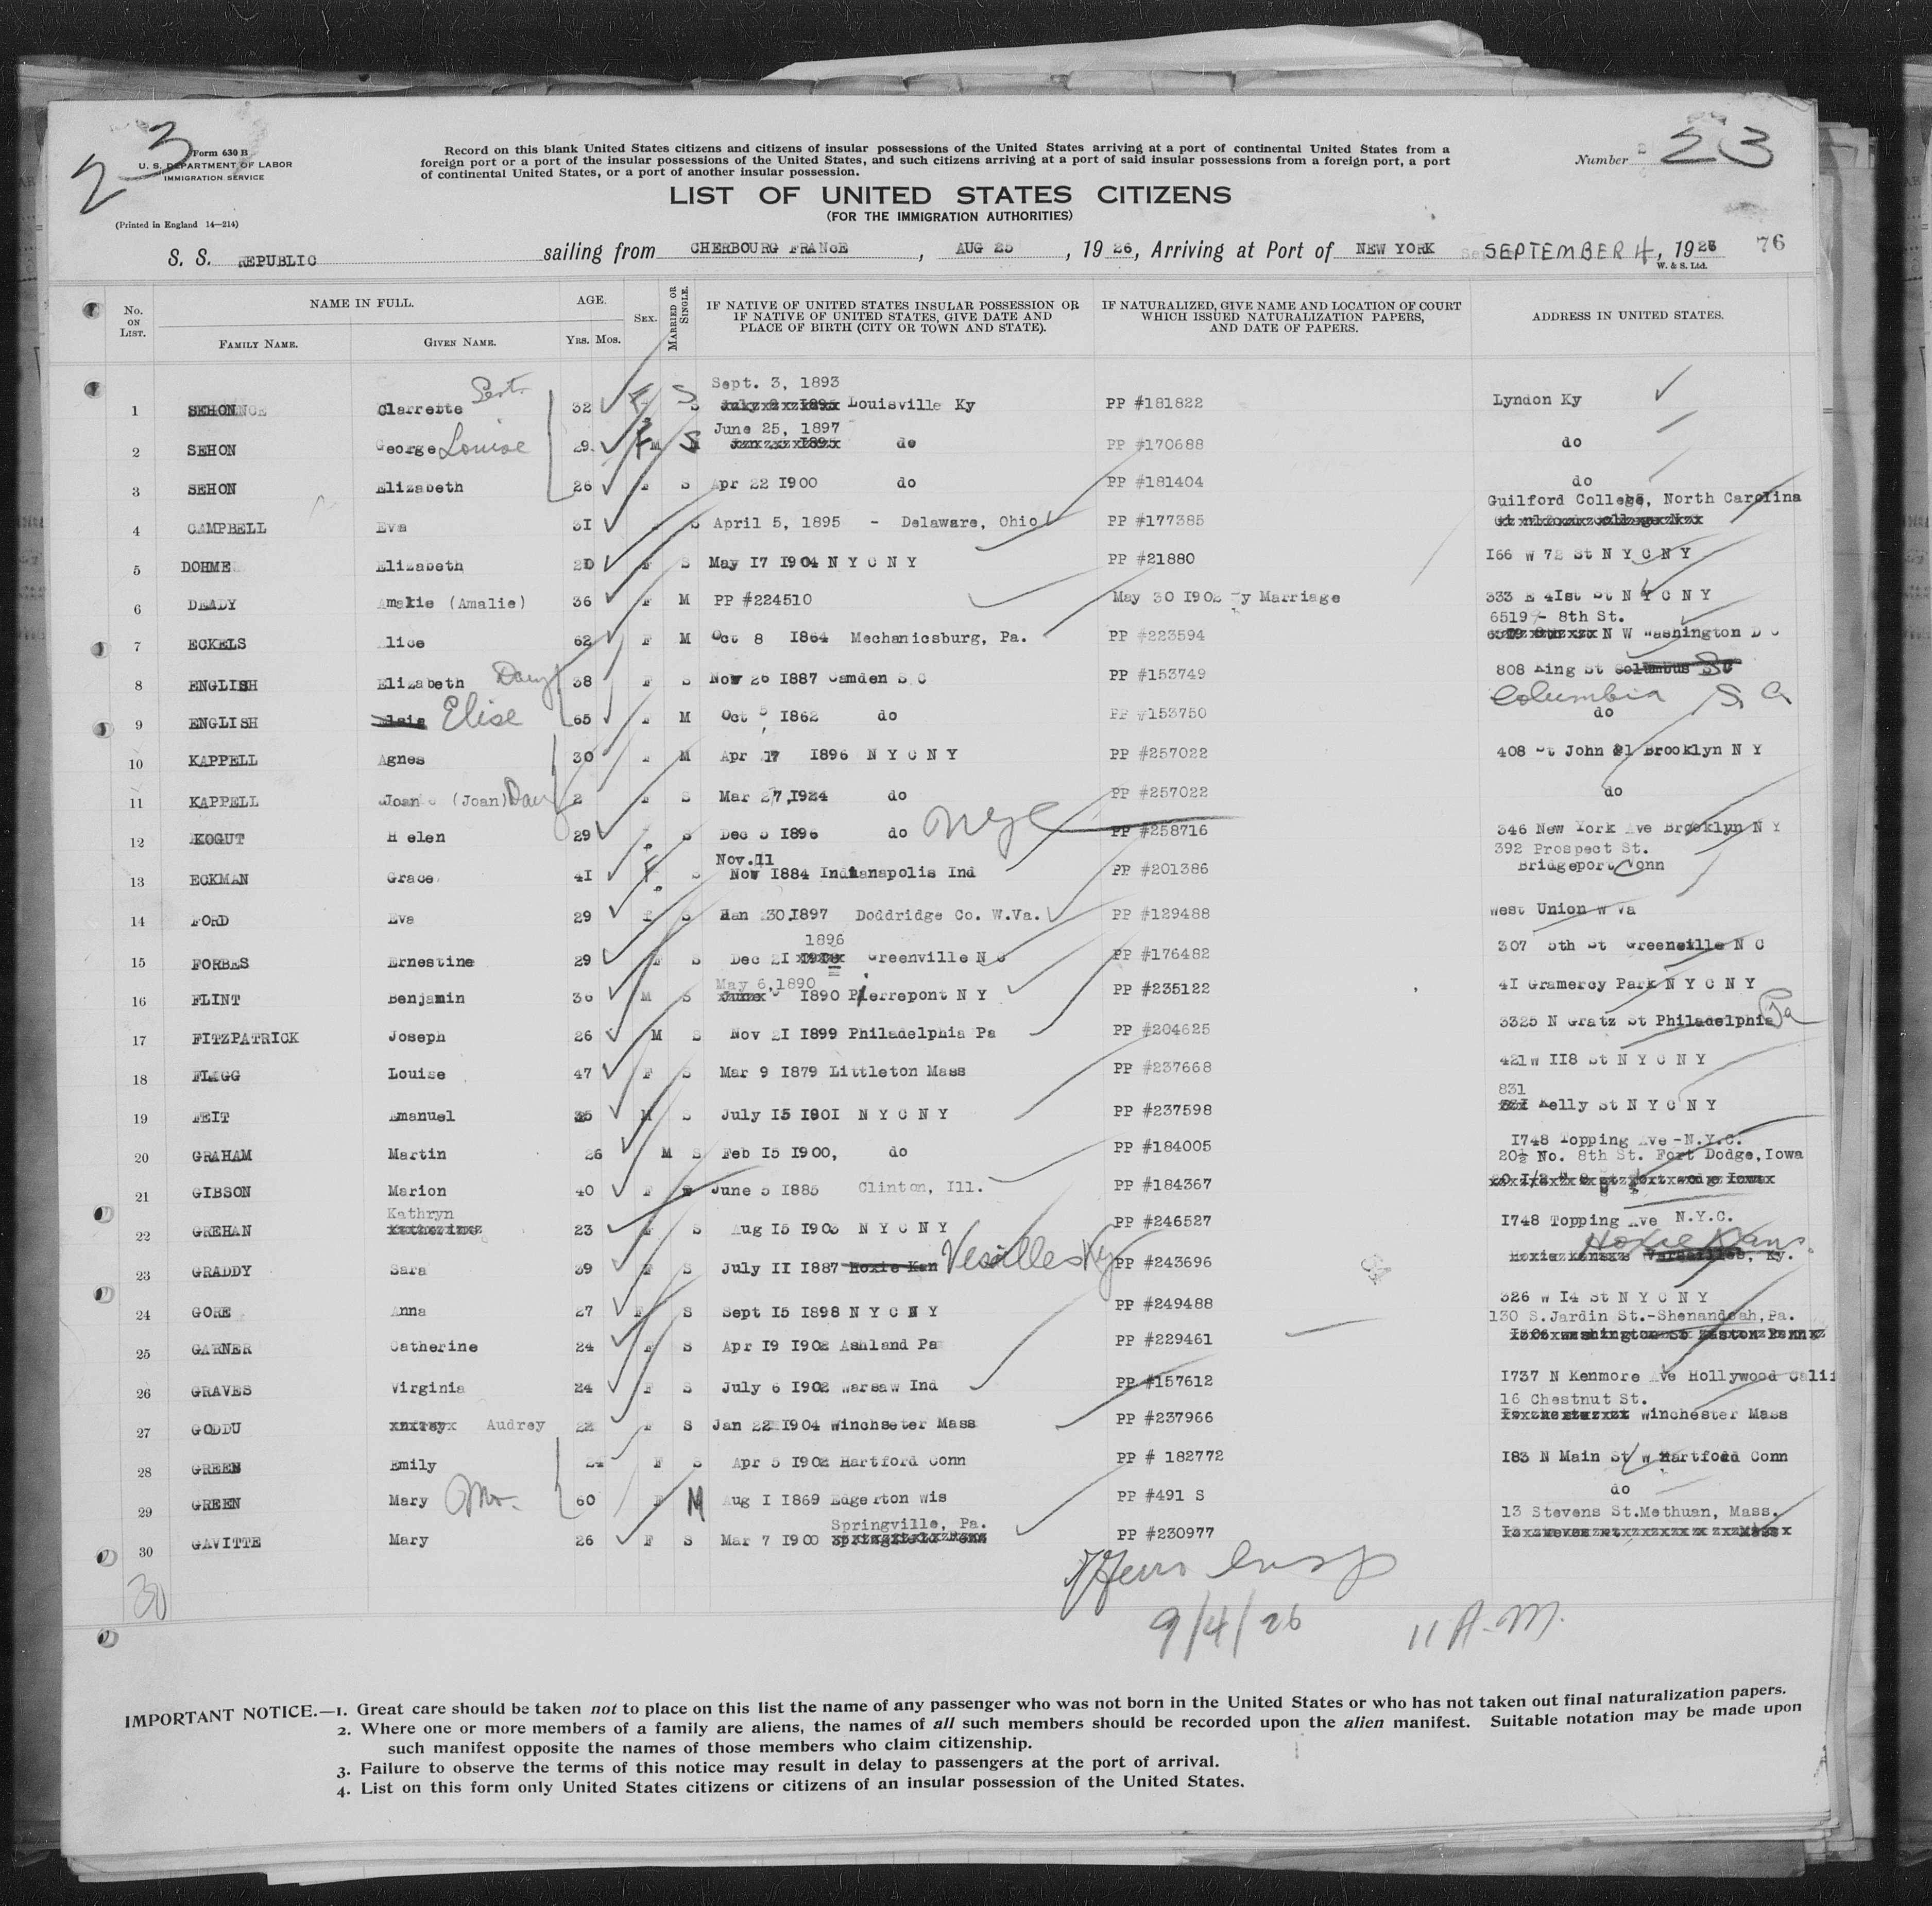 23
Form 630 B
U. S. DEPARTMENT OF LABOR
IMMIGRATION SERVICE
(Printed in England 14—214)
Record on this blank United States citizens and citizens of insular possessions of the United States arriving at a port of continental United States from a
foreign port or a port of the insular possessions of the United States, and such citizens arriving at a port of said insular possessions from a foreign port, a port
of continental United States, or a port of another insular possession.
Number 23
LIST OF UNITED STATES CITIZENS
(FOR THE IMMIGRATION AUTHORITIES)
S. S. REPUBLIC sailing from CHERBOURG FRANCE, AUG 25, 1926, Arriving at Port of NEW YORK SEPTEMBER 4, 1926 76
W. & S. Ltd.
No. ON LIST. NAME IN FULL. FAMILY NAME. GIVEN NAME. AGE. YRS. MOS. SEX. MARRIED OR SINGLE. IF NATIVE OF UNITED STATES INSULAR POSSESSION OR IF NATIVE OF UNITED STATES, GIVE DATE AND PLACE OF BIRTH (CITY OR TOWN AND STATE). IF NATURALIZED, GIVE NAME AND LOCATION OF COURT WHICH ISSUED NATURALIZATION PAPERS, AND DATE OF PAPERS. ADDRESS IN UNITED STATES.
Sept. 3, 1893
1 SEHON Clarrette 32 F S Louisville Ky PP #181822 Lyndon Ky
June 25, 1897
2 SEHON George Louise 29 F S do PP #170688 do
3 SEHON Elizabeth 26 F S Apr 22 1900 do PP #181404 do
Guilford College, North Carolina
4 CAMPBELL Eva 31 S April 5, 1895 - Delaware, Ohio PP #177385
5 DOHME Elizabeth F S May 17 1904 N Y C N Y PP #21880 166 W 72 St N Y C N Y
6 DEADY Amalie (Amalie) 36 F M PP #224510 May 30 1902 By Marriage 333 E 41st St N Y C N Y
6519 - 8th St.
7 ECKELS Alice 62 F M Oct 8 1864 Mechanicsburg, Pa. PP #223594 N W Washington D C
8 ENGLISH Elizabeth 38 F S Nov 26 1887 Camden S C PP #153749 808 King St Columbus SC
Columbia S C
9 ENGLISH Elsie Elise 65 F M Oct 5 1862 do PP #153750 do
10 KAPPELL Agnes 30 F M Apr 17 1896 N Y C N Y PP #257022 408 St John Pl Brooklyn N Y
11 KAPPELL Joan (Joan) Dau 2 F S Mar 27, 1924 do PP #257022 do
12 KOGUT Helen 29 S Dec 5 1896 do NYC PP #258716 346 New York Ave Brooklyn N Y
Nov. 11 392 Prospect St.
13 ECKMAN Grace 41 F S Nov 1884 Indianapolis Ind PP #201386 Bridgeport Conn
14 FORD Eva 29 f S Jan 30, 1897 Doddridge Co. W.Va. PP #129488 West Union W Va
1896
15 FORBES Ernestine 29 F S Dec 21 Greenville N C PP #176482 307 5th St Greenville N C
May 6, 1890
16 FLINT Benjamin 36 M S 1890 Pierrepont N Y PP #235122 41 Gramercy Park N Y C N Y
17 FITZPATRICK Joseph 26 M S Nov 21 1899 Philadelphia Pa PP #204625 3325 N Gratz St Philadelphia Pa
18 FLAGG Louise 47 F S Mar 9 1879 Littleton Mass PP #237668 421 W 118 St N Y C N Y
831
19 FEIT Emanuel 25 M S July 15 1901 N Y C N Y PP #237598 Kelly St N Y C N Y
20 GRAHAM Martin 26 M S Feb 15 1900, do PP #184005 1748 Topping Ave - N.Y.C.
20½ No. 8th St. Fort Dodge, Iowa
21 GIBSON Marion 40 F June 5 1885 Clinton, Ill. PP #184367
Kathryn
22 GREHAN 23 F S Aug 15 1903 N Y C N Y PP #246527 1748 Topping Ave N.Y.C.
Hoxie Kans.
23 GRADDY Sara 39 F S July 11 1887 Hoxie Kan PP #243696 Versailles, Ky.
24 GORE Anna 27 F S Sept 15 1898 N Y C N Y PP #249488 326 W 14 St N Y C N Y
130 S. Jardin St.-Shenandoah, Pa.
25 GARNER Catherine 24 F S Apr 19 1902 Ashland Pa PP #229461
26 GRAVES Virginia 24 F S July 6 1902 Warsaw Ind PP #157612 1737 N Kenmore Ave Hollywood Cali
16 Chestnut St.
27 GODDU Audrey 22 F S Jan 22 1904 Winchseter Mass PP #237966 Winchester Mass
28 GREEN Emily 24 F S Apr 5 1902 Hartford Conn PP # 182772 183 N Main St W Hartford Conn
29 GREEN Mary Mo. 60 F M Aug 1 1869 Edgerton Wis PP #491 S do
Springville, Pa. 13 Stevens St. Methuan, Mass.
30 GAVITTE Mary 26 F S Mar 7 1900 PP #230977
30
Insp
9/4/26 11 A.M.
IMPORTANT NOTICE.—1. Great care should be taken not to place on this list the name of any passenger who was not born in the United States or who has not taken out final naturalization papers.
2. Where one or more members of a family are aliens, the names of all such members should be recorded upon the alien manifest. Suitable notation may be made upon
such manifest opposite the names of those members who claim citizenship.
3. Failure to observe the terms of this notice may result in delay to passengers at the port of arrival.
4. List on this form only United States citizens or citizens of an insular possession of the United States.